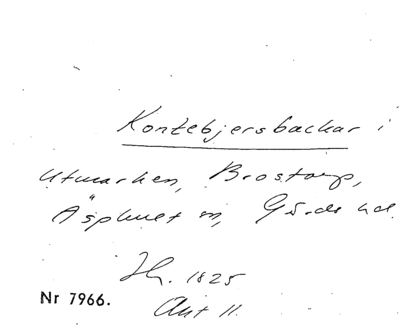 Kontebjersbackar i
Utmarken, Brostorp,
Äsphult m, Gärds hd.
Jh. 1825
Akt 11.
Nr 7966.